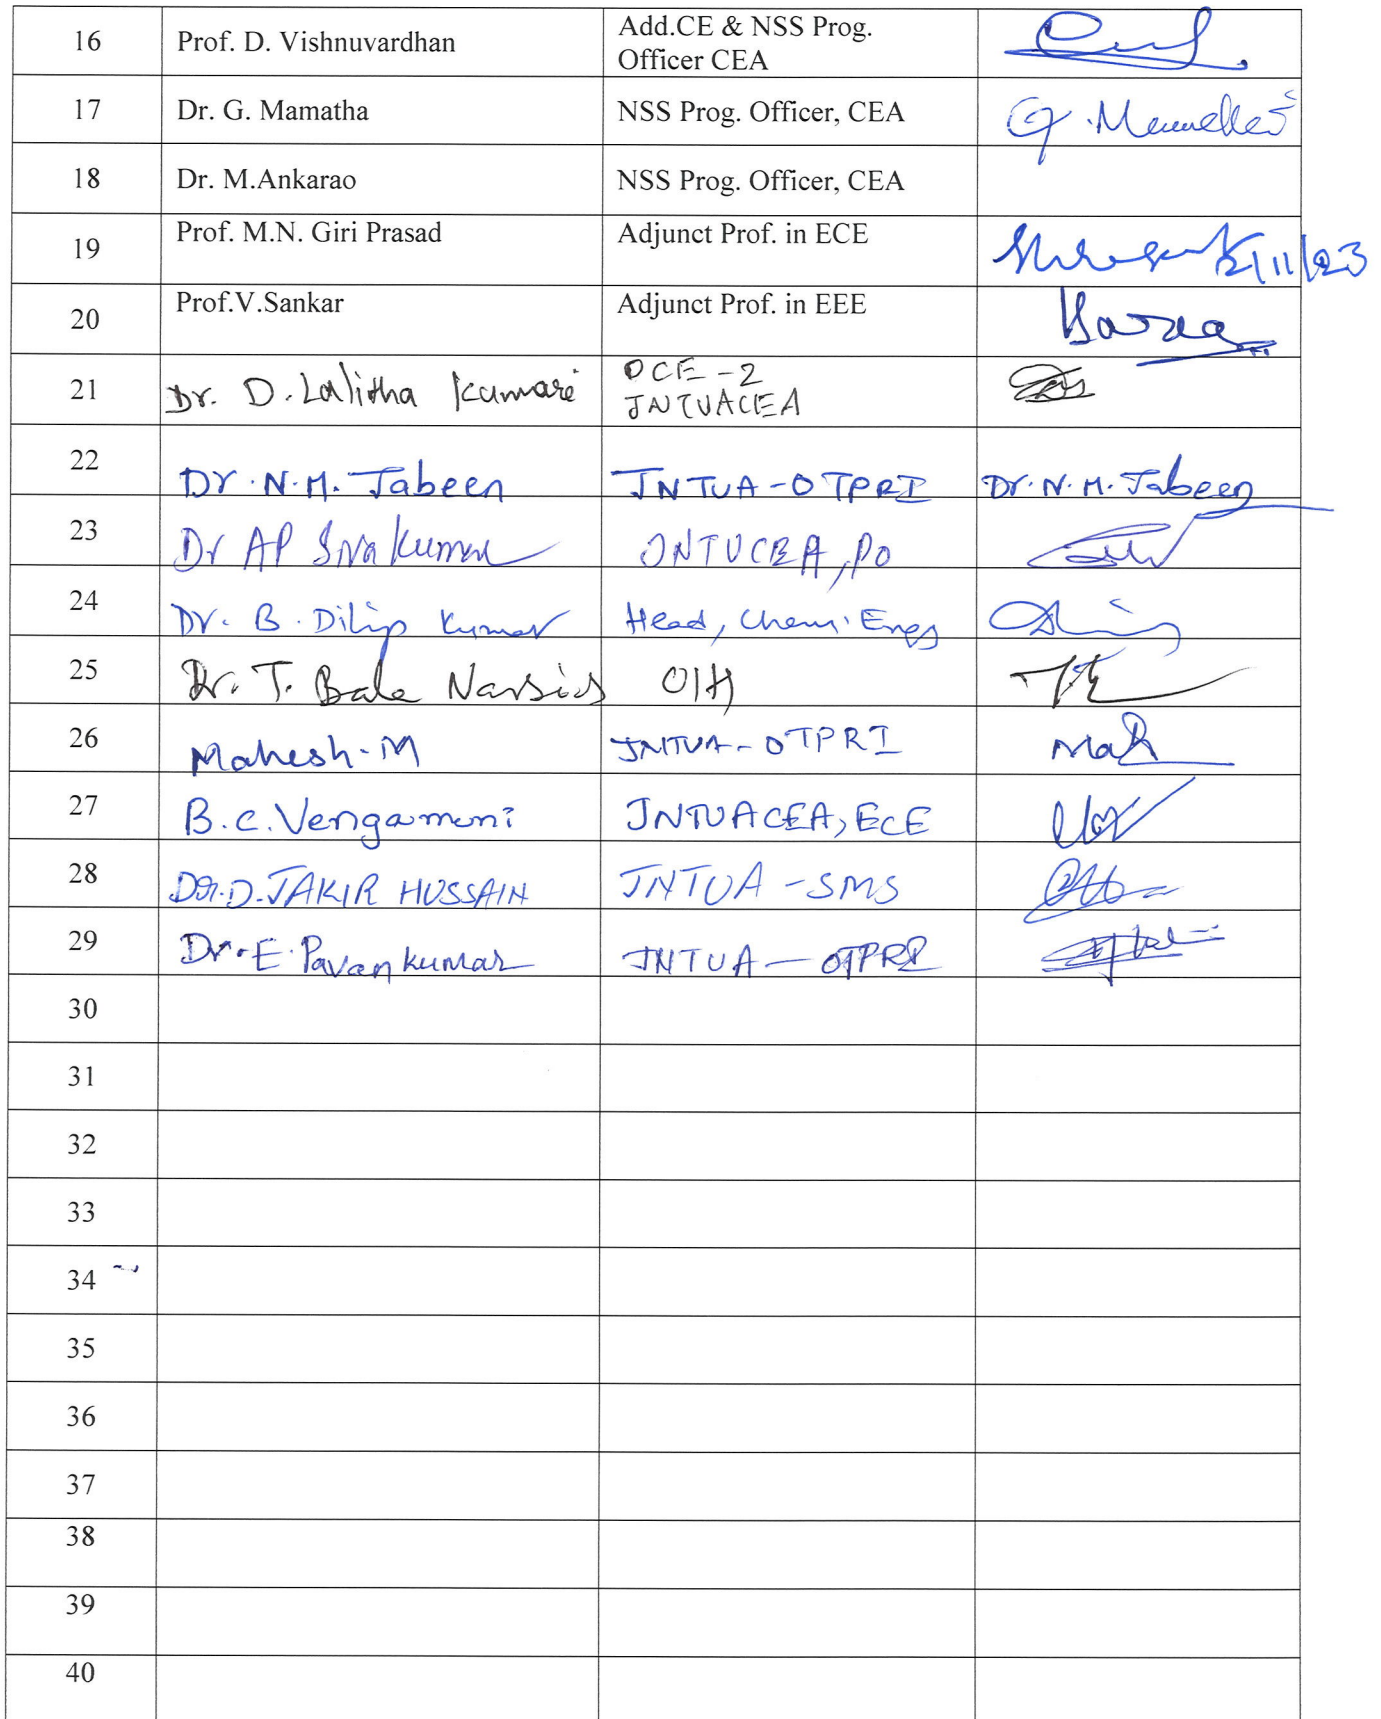 16 Prof. D. Vishnuvardhan Add.CE & NSS Prog.
Officer CEA
17 Dr. G. Mamatha NSS Prog. Officer, CEA G. Mamatha
18 Dr. M.Ankarao NSS Prog. Officer, CEA
19 Prof. M.N. Giri Prasad Adjunct Prof. in ECE
20 Prof.V.Sankar Adjunct Prof. in EEE
21 Dr. D. Lalitha Kumari OCE-2
JNTUACEA
22 Dr. N. M. Jabeen JNTUA-OTPRI Dr. N. M. Jabeen
23 Dr AP Siva Kumar JNTUCEA, PO
24 Dr. B. Dilip Kumar Head, Chem. Engg
25 Dr. T. Bala
26 Mahesh. M JNTUA-OTPRI
27 B.C. Vengamuni JNTUACEA, ECE
28 Dr. D. JAKIR HUSSAIN JNTUA-SMS
29 Dr. E. Pavan kumar JNTUA-OTPRI
30
31
32
33
34
35
36
37
38
39
40